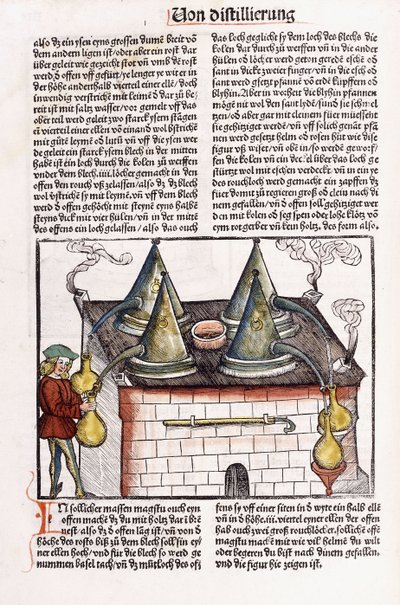 Von distillierung
also dz ein ysen eyns grossen dumē breit vō
dem andern ligen ist/oder aber ein rost dar
über geleit wie gezeicht stot vñ vmb dē rost
werd ð offen vff gefürt/ye lenger ye wir er in der
höhe anderhalb vierteil einer elle/doch
inwendig verstricht mit leimē ð dar zů be
reit ist mit saltz wasser/vor gemelt vff das
ober teil werd geleit zwo starck ysern stāgen
eñ vierteil einer ellen vō einand wol bstriche
mit gůte leymē ð lutū vñ vff die ysen wer
de geleit ein starck yseln blech in der mitten
habē ist ein loch durch die kolen zů werffen
vnder dem blech.iiij.löcher gemacht in dem
offen den rouch vß zelassen/also dz dz blech
wol bstrichē sy mit leymē.vñ vff dem blech
werd ð offen gehöcht mit steynē eyns halbē
steyns dick mit vier hülen/vñ in der mitte
des offens ein loch gelassen/also das ouch
das loch geglicht sy dem loch des blechs die
kolen dar durch zů werffen vñ in die ander
hülen od löcher werd geton geredē esche od
sant in dicke zweier finger/vñ in die esch od
sant werd gesetzt pfannē võ erdē kupffern od
blyhin.Aber in weiher die blyhin pfannen
mögē nit wol den sant lydē/sund sie schmel
tzen/od aber gar mit cleinem für
sie gehitziger werdē/vñ vff solich genāt pfā
nen werd gesetzt helm od rosen hüt wie dise
figur vß wiset/vñ obē in/so werdē geworf
fen die kolen vñ ein deckel über das loch ge
stürtzt wol mit eschen verdeckt.vñ in ein ye
des rouchloch werd gemacht ein zapffen dz
fuer domit zů regieren groß od clein nach di
nem gefallen/vñ ð offen sol gehitziget wer
den mit kolen od seg spen oder lohe klötz vō
eym rot gerber vñ kein holtz.des form also.
IN sollicher massen magstu ouch eyn
offen machē dz du mit holtz dar in bre
nest/also dz ð offen lāg ist/vñ von ð
höche des rosts biß zů dem blech soll sin ey
ner ellen hoch/vnd für die blech so werd ge
nummen basel tach/vñ dz mütloch des ofs
fens sy vff einer siten in ð wyte ein halb elle
vñ in ð höhē.iii.viertel eyner ellen der offen
hab ouch zwei groß rouchlöcher.sollichē offē
magstu machē mit wie vil helmē du wilt
oder begeren du bist nach dinem gefallen,
vnd die figur hie zeigen ist.